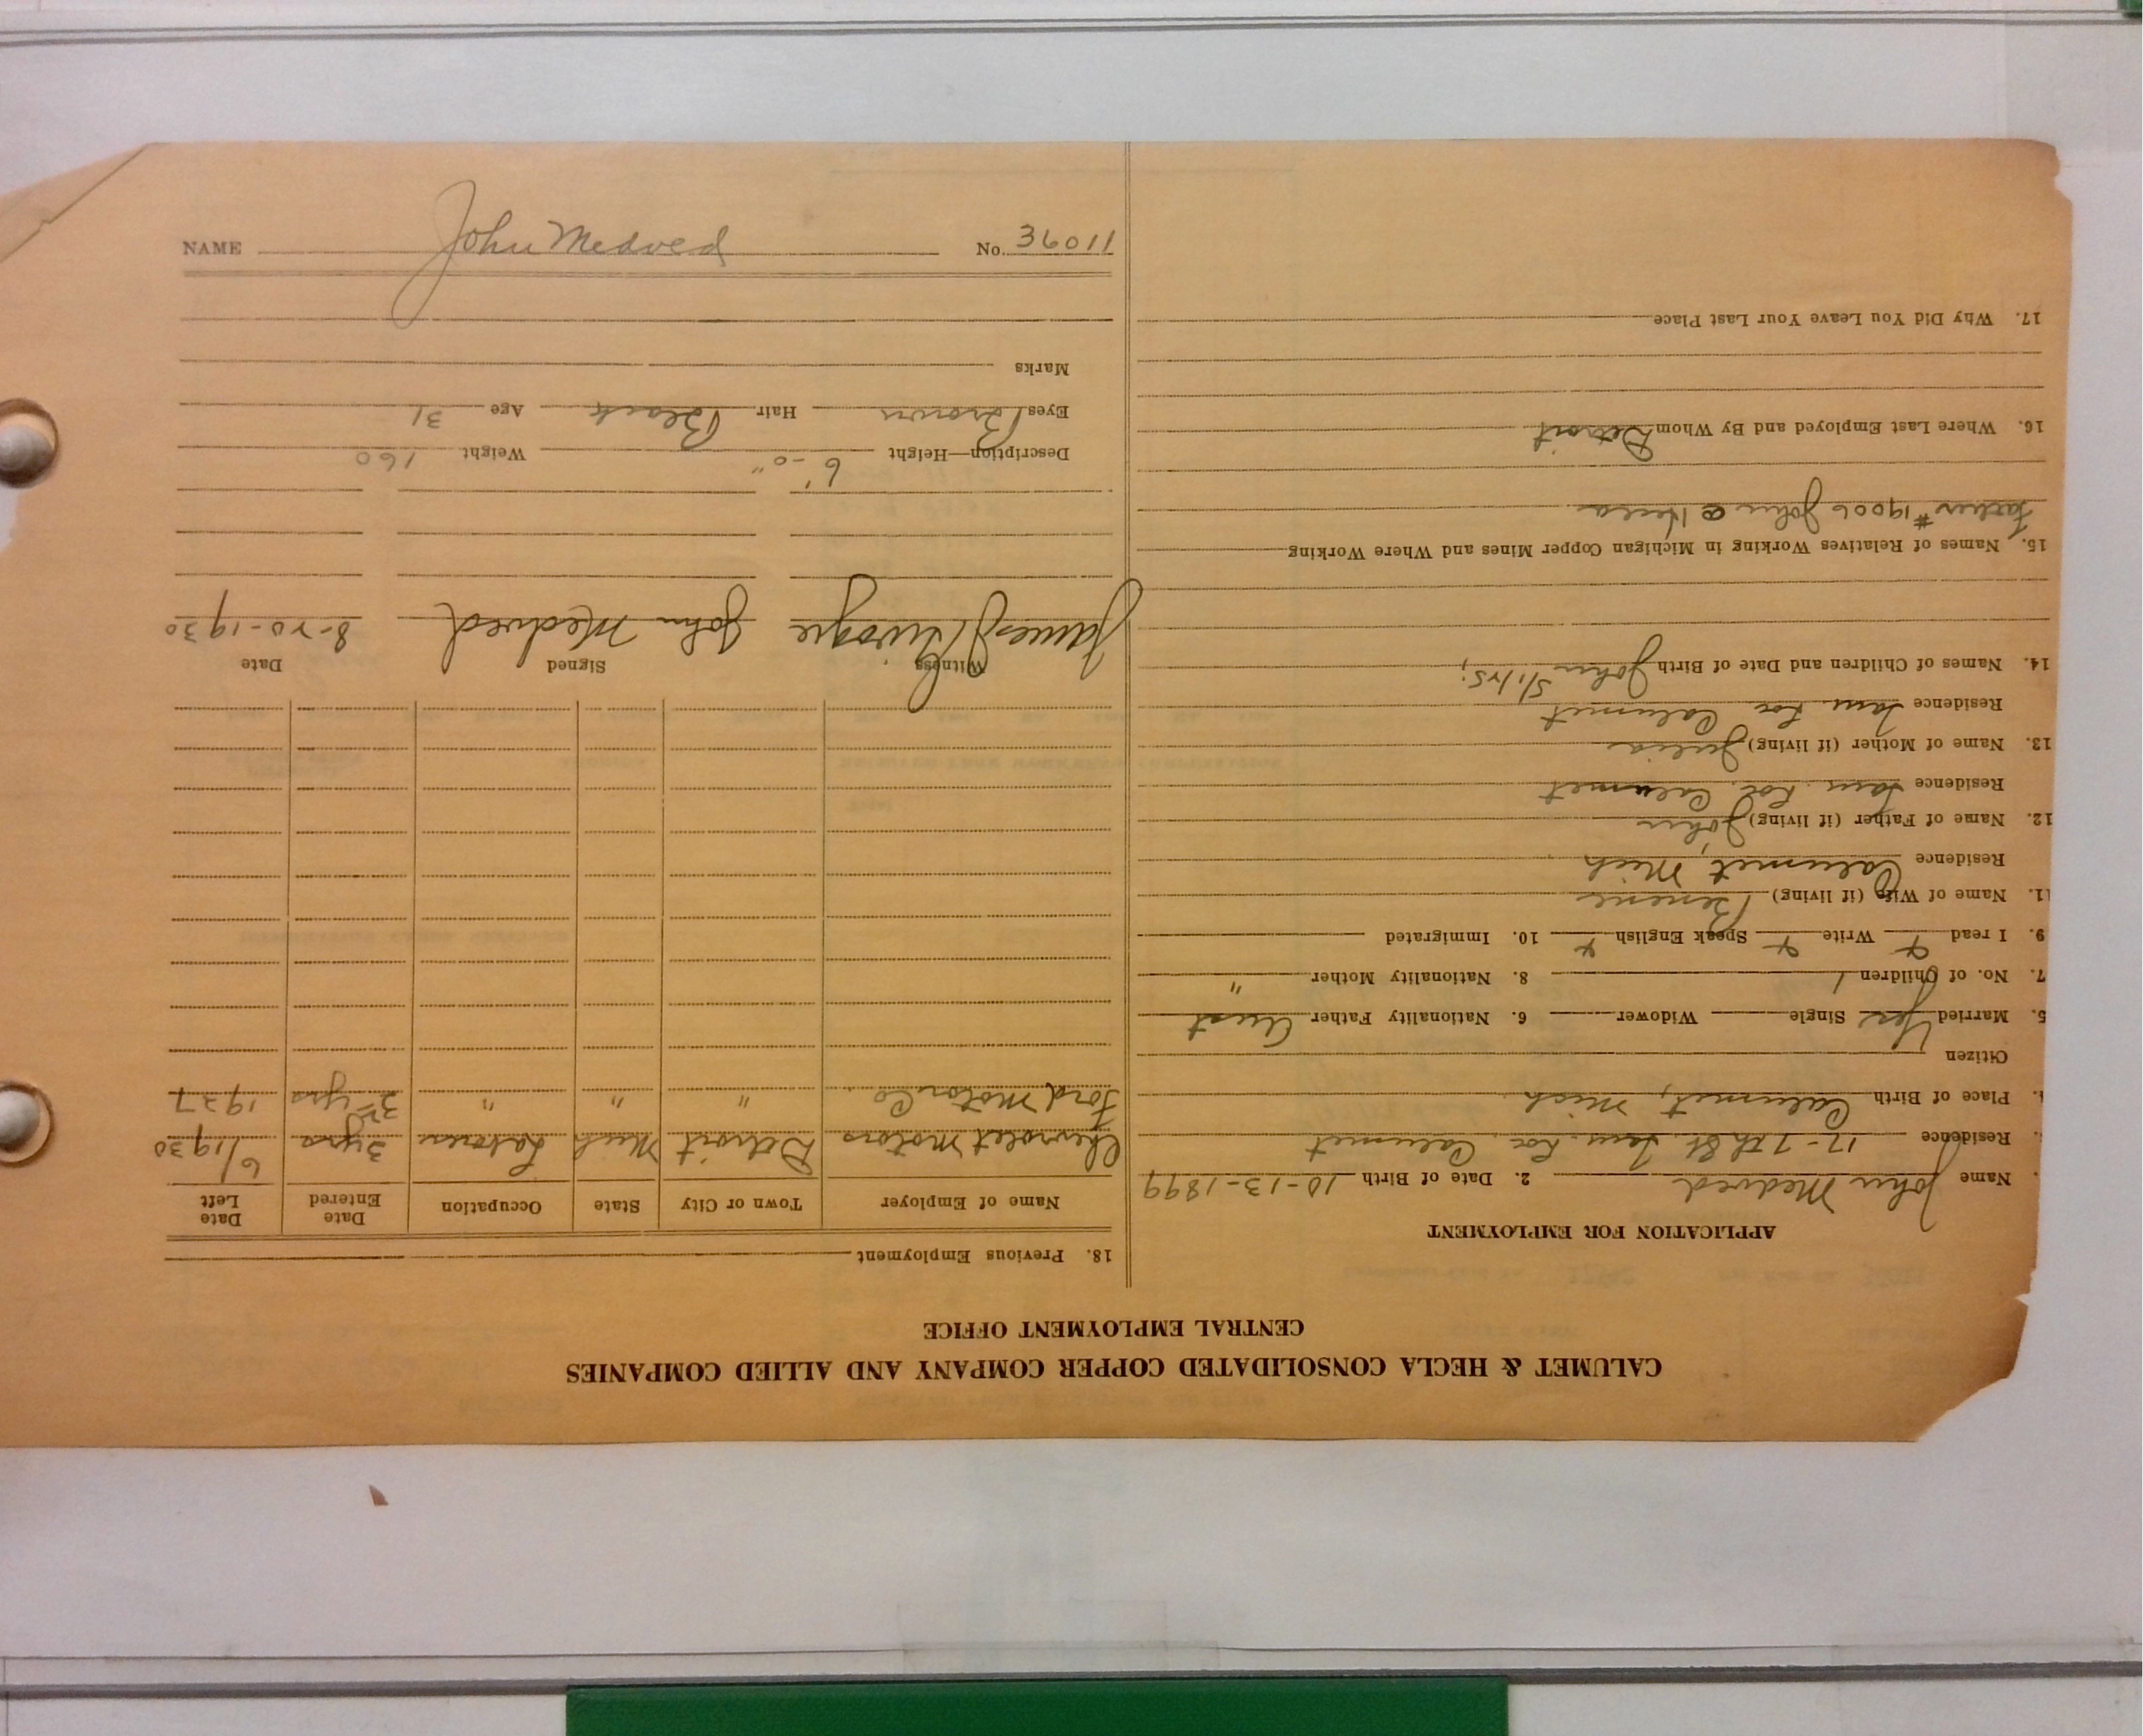 CALUMET & HECLA CONSOLIDATED COPPER COMPANY AND ALLIED COMPANIES
CENTRAL EMPLOYMENT OFFICE
APPLICATION FOR EMPLOYMENT
Name John Medved 2. Date of Birth 10-13-1899
Residence 17-7th St. Tam. Loc. Calumet
Place of Birth Calumet, Mich.
Citizen
5. Married Yes Single Widower 6. Nationality Father Aust
7. No. of Children 1 8. Nationality Mother "
9. I read Write Speak English 10. Immigrated
11. Name of Wife (if living)
Residence Calumet Mich
12. Name of Father (if living) John
Residence Tam. Loc. Calumet
13. Name of Mother (if living) Julia
Residence Tam. Loc. Calumet
14. Names of Children and Date of Birth John
15. Names of Relatives Working in Michigan Copper Mines and Where Working
Father #19006 John @ Hecla
16. Where Last Employed and By Whom Detroit
17. Why Did You Leave Your Last Place
18. Previous Employment
Name of Employer Town or City State Occupation Date Entered Date Left
Chevrolet Motors Detroit Mich Laborer 3 yrs 6/1930
Ford Motor Co. " " " yrs 1927
Witness Signed Date
James John Medved 8-20-1930
Description—Height 6'-0" Weight 160
Eyes Brown Hair Black Age 31
Marks
NAME John Medved No. 36011